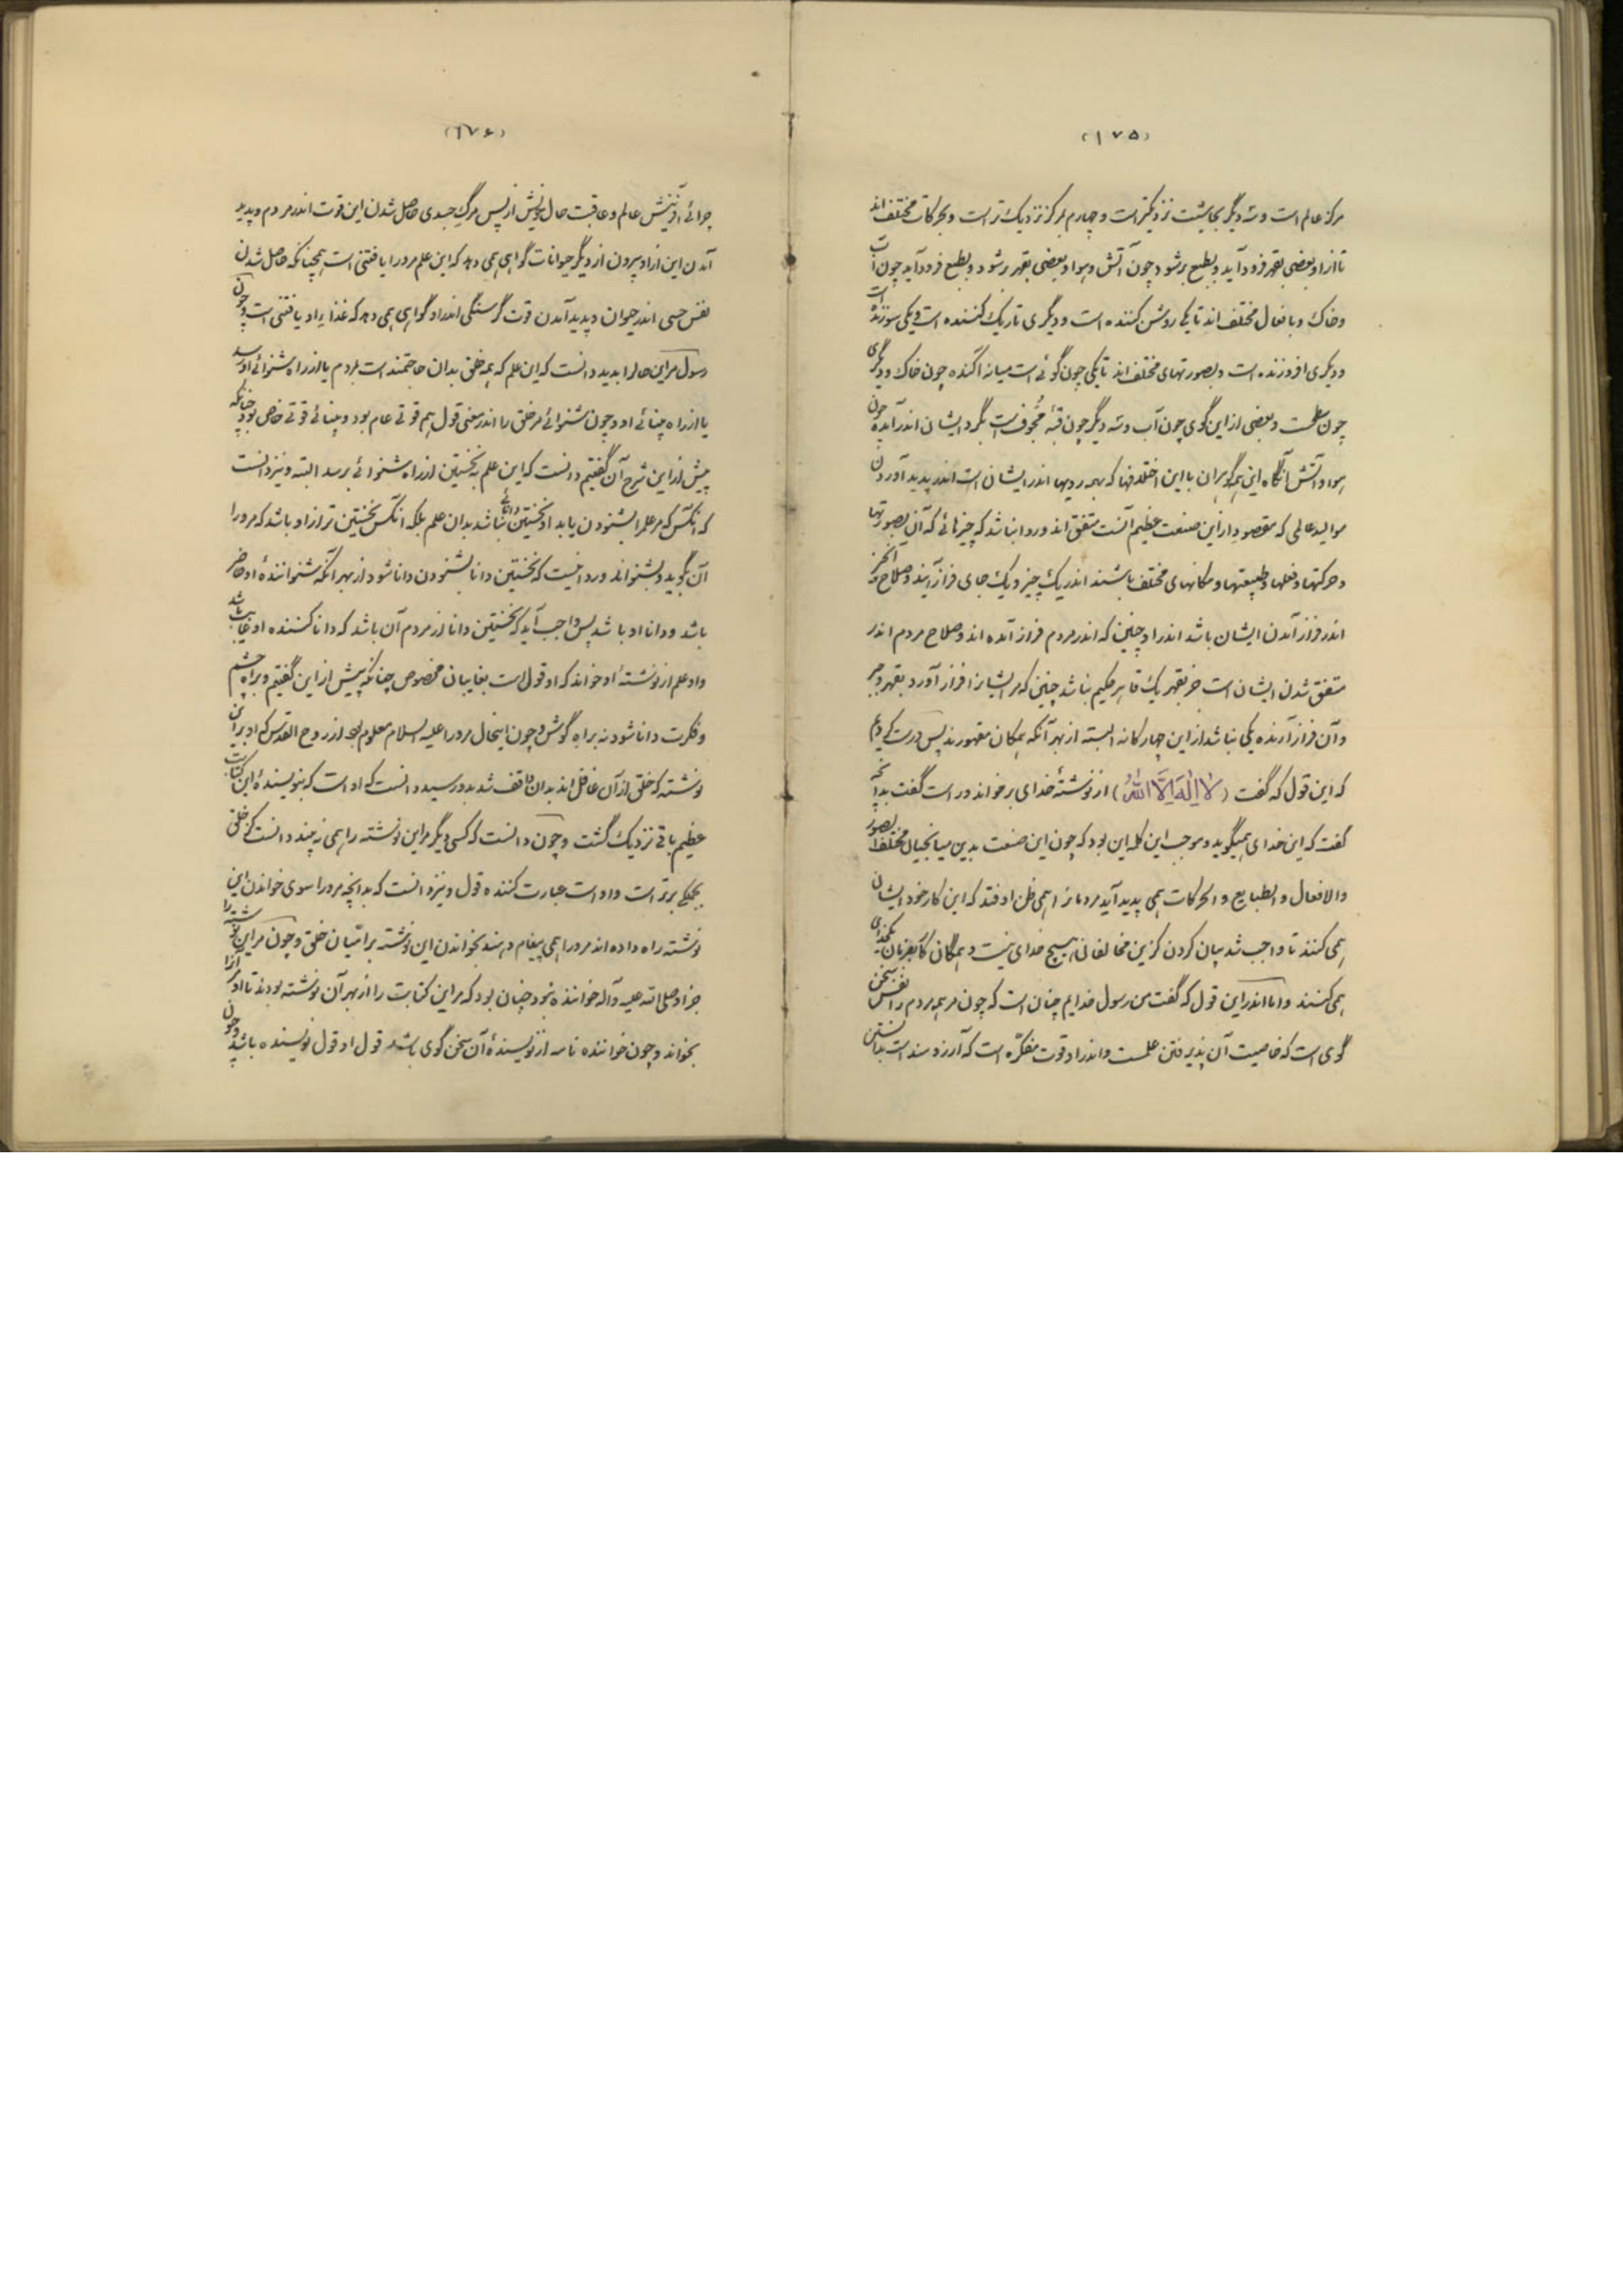 (۱۷۵)
مرکز عالم است و سه دیگر بحاشیت نزدیکتر است و چهارم بمرکز نزدیک‌تر است و بحرکات مختلف‌اند
تا از او بعضی بقهر فرود آید و بطبع برشود چون آتش و هوا و بعضی بقهر برشود و بطبع فرود آید چون آب
و خاک و بافعال مختلف‌اند تا یکی روشن کننده است و دیگری تاریک کننده است و یکی سوزنده است
و دیگری افروزنده است و بصورتهای مختلف‌اند تا یکی چون گوئی است میانه آکنده چون خاک و دیگری
چون سطحست و بعضی از این گوی چون آب و سه دیگر چون قبّهٔ مجوّف است بگرد ایشان اندر آمده چون
هوا و آتش آنگاه این همه گوهران با این اختلافها که بهمه رویها اندر ایشان است اندر پدید آوردن
موالید عالمی که مقصود از این صنعت عظیم آنست متفق‌اند و روا نباشد که چیزهائی که آن بصورتها
و حرکتها و فعلها و طبیعتها و مکانهای مختلف باشند اندر یک چیز و یک جای فراز آیند و صلاح آن چیز
اندر فراز آمدن ایشان باشد اندر او چنین که اندر مردم فراز آمده‌اند و صلاح مردم اندر
متفق شدن ایشان است جز بقهر یک قاهر حکیم نباشد چنین که مر ایشانرا فراز آورد بقهر و جبر
و آن فراز آرنده یکی نباشد از این چهارگانه البته از بهر آنکه همگان مقهورند پس درست کردیم
که این قول که گفت (لا اِلٰهَ اِلَّا اللّٰهُ) از نوشتهٔ خدای برخواند و راست گفت بدانچه
گفت که این خدای همیگوید و موجب این کلمه این بود که چون این صنعت بدین میانجیان مختلف الصور
والافعال و الطبایع و الحرکات همی پدید آید مردمانرا همی ظن اوفتد که این کار خود ایشان
همی کنند تا واجب شد بیان کردن کزین مخالفان هیچ خدای نیست و همگان کار بفرمان یکخدای
همی کنند و اما اندر این قول که گفت من رسول خدایم چنان است که چون مر همه مردم را نفس سخن
گوی است که خاصیت آن پذیرفتن علمست و اندر او قوت مفکّره است که آرزومند است بدانستن
(۱۷۶)
چرائی آفرینش عالم و عاقبت حال خویش از پس مرگ جسدی حاصل شدن این قوت اندر مردم و پدید
آمدن این از او بیرون از دیگر حیوانات گواهی همی دهد که این علم مرورا یافتنی است همچنانکه حاصل شدن
نفس حسی اندر حیوان و پدید آمدن قوت گرسنگی اندر او گواهی همی دهد که غذا یر او یافتنی است و چون
رسول مر این حالرا بدید دانست که این علم که همه خلق بدان حاجتمند است بمردم یا از راه شنوائی او رسد
یا از راه بینائی او و چون شنوائی مر خلق را اندر معنی قول بهم قوتی عام بود و بینائی قوتی خاص بود چنانکه
پیش از این شرح آن گفتیم دانست که این علم بنخستین از راه شنوائی برسد البته و نیز دانست
که آنکس که مر علم را بشنودن یابد او نخستین دانائی نباشد بدان علم بلکه آنکس نخستین‌تر از او باشد که مرورا
آن بگوید و بشنواند و روا نیست که نخستین دانا بشنودن دانا شود از بهر آنکه شنوانندهٔ او حاضر
باشد و دانا او باشد پس واجب آید که نخستین دانا از مردم آن باشد که دانا کننده او غایب باشد
و او علم از نوشتهٔ او خواند که او قول است بغایبان مخصوص چنانکه پیش از این گفتیم و براه چشم
و فکرت دانا شود نه براه گوش و چون اینحال مرورا علیه السلام معلوم شد از روح القدس که او بر این
نوشته که خلق از آن غافل‌اند بدان واقف شد بدو رسید دانست که او است که بنویسندهٔ این کتابت
عظیم باقی نزدیک گشت و چون دانست که کسی دیگر مر این نوشته را همی نه بیند دانست کز خلق
بجملگی برتر است و او است عبارت کننده قول و نیز دانست که بدانچه مرورا سوی خواندن این
نوشته راه داده‌اند مرورا همی پیغام دهند بخواندن این نوشته بر امتیان خلق و چون مر این نوشته را
جز او صلی الله علیه و آله خواننده نبود چنان بود که مر این کتابت را از بهر آن نوشته بودند تا او مر آنرا
بخواند و چون خواننده نامه از نویسندهٔ آن سخن گوی باشد قول او قول نویسنده باشد و چون